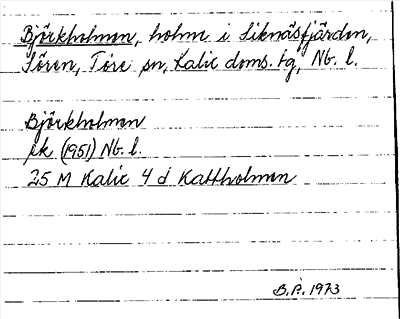 Björkholmen, holme i Siknäsfjärden,
Sören, Töre sn, Kalix doms. tg, Nb. l.
Björkholmen
ek (1951) Nb. l.
25 M Kalix 4 d Kattholmen
B.P. 1973